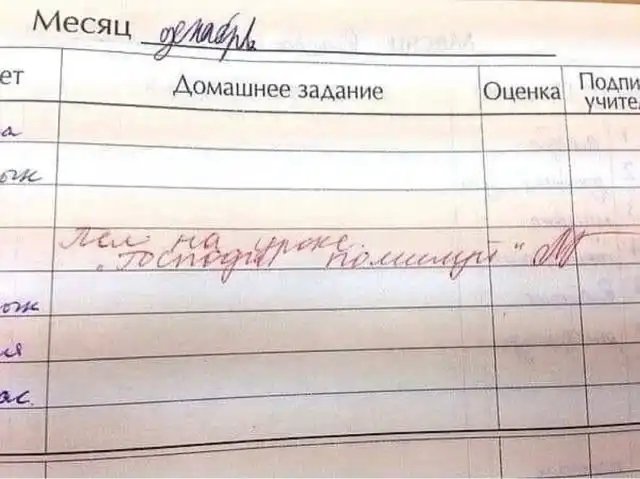 Месяц декабрь
ет Домашнее задание Оценка Подпи учите
а
ык
Пел на уроке
"Господи помилуй"
ык
ия
ас.